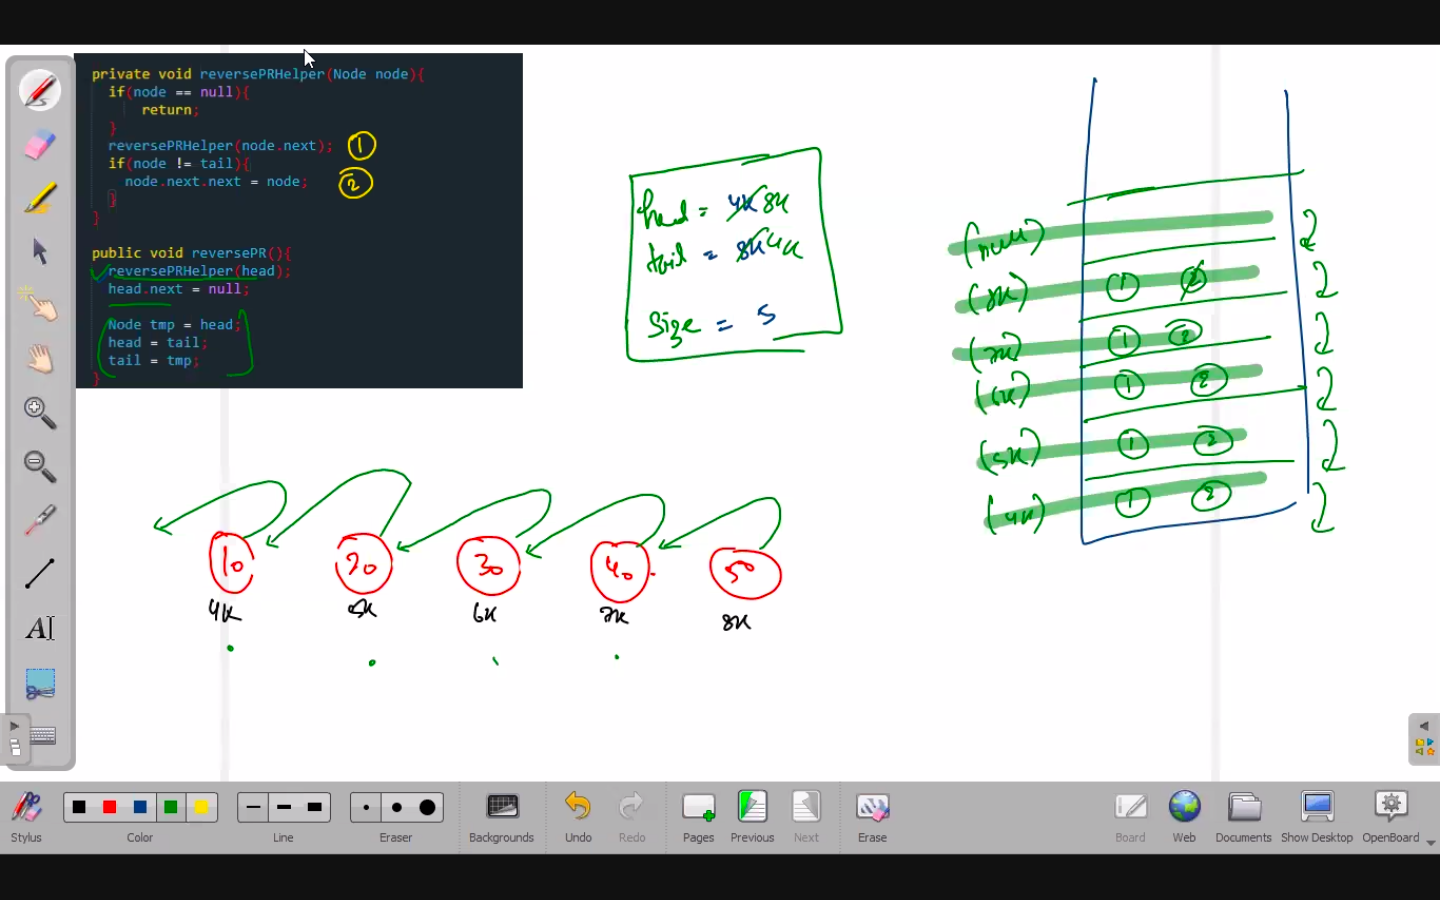 private void reversePRHelper(Node node){
if(node == null){
return;
}
reversePRHelper(node.next); 1
if(node != tail){
node.next.next = node; 2
}
}
public void reversePR(){
reversePRHelper(head);
head.next = null;
Node tmp = head;
head = tail;
tail = tmp;
}
head = 4K 8K
tail = 8K 4K
Size = 5
(null)
(8K) 1 2
(7K) 1 2
(6K) 1 2
(5K) 1 2
(4K) 1 2
10 20 30 40 50
4K 5K 6K 7K 8K
A
Stylus Color Line Eraser Backgrounds Undo Redo Pages Previous Next Erase Board Web Documents Show Desktop OpenBoard